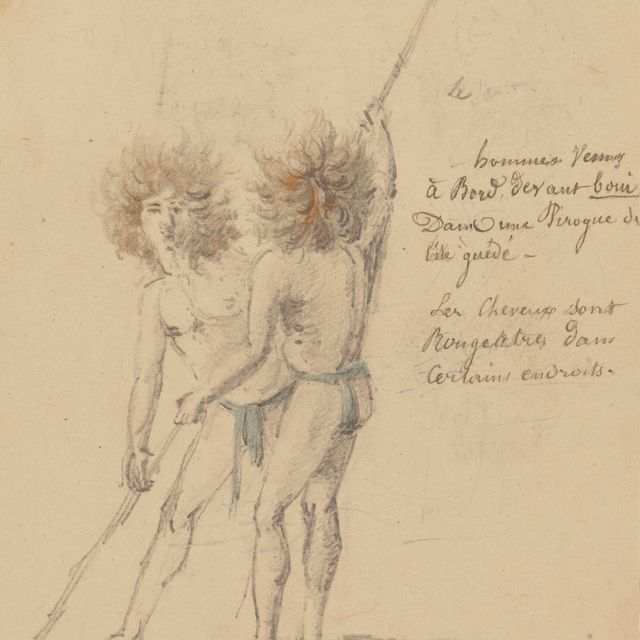 le
hommes venus
à Bord devant boni
Dans une Pirogue de
l'ile guédé -
Les Cheveux sont
Rougeatres dans
Certains endroits.